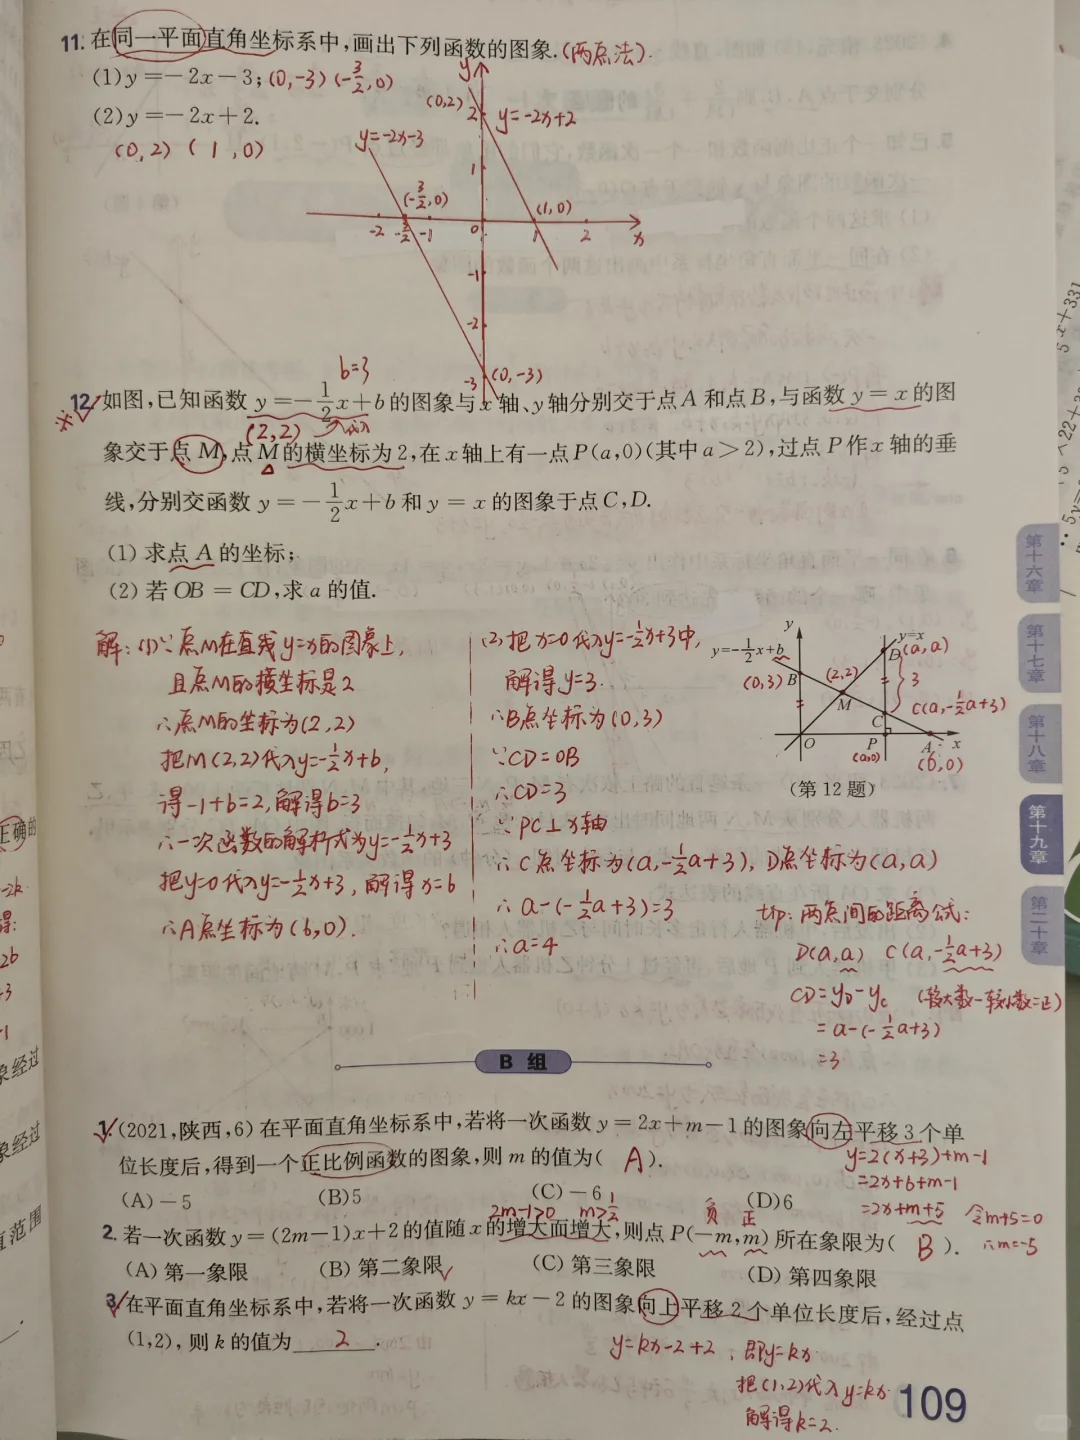 11. 在同一平面直角坐标系中,画出下列函数的图象.(两点法).
(1) y=-2x-3; (0,-3) (-3/2,0)
(2) y=-2x+2.
(0,2) (1,0)
y
(0,2)
2
y=-2x+2
y=-2x-3
1
(-3/2,0)
(1,0)
-2 -3/2 -1 0 1 2 x
-1
-2
-3 (0,-3)
b=3
※12. 如图,已知函数 y=-1/2x+b的图象与x轴、y轴分别交于点A和点B,与函数y=x的图
(2,2) 代入
象交于点M,点M的横坐标为2,在x轴上有一点P(a,0)(其中a>2),过点P作x轴的垂
线,分别交函数 y=-1/2x+b和y=x的图象于点C,D.
(1) 求点A的坐标;
(2) 若OB=CD,求a的值.
解:(1)∵点M在直线y=x的图象上,
且点M的横坐标是2
∴点M的坐标为(2,2)
把M(2,2)代入y=-1/2x+b,
得-1+b=2,解得b=3
∴一次函数的解析式为y=-1/2x+3
把y=0代入y=-1/2x+3,解得x=6
∴A点坐标为(6,0).
(2)把x=0代入y=-1/2x+3中,
解得y=3.
∴B点坐标为(0,3)
∵CD=OB
∴CD=3
∵PC⊥x轴
∴C点坐标为(a,-1/2a+3), D点坐标为(a,a)
∴a-(-1/2a+3)=3
∴a=4
y
y=x
y=-1/2x+b
D (a,a)
(0,3) B
(2,2)
3
M
C
C(a,-1/2a+3)
O P A x
(a,0)
(6,0)
(第12题)
tip: 两点间的距离公式:
D(a,a) C(a,-1/2a+3)
CD=yD-yC (较大数-较小数=正)
=a-(-1/2a+3)
=3
B 组
1. (2021,陕西,6)在平面直角坐标系中,若将一次函数y=2x+m-1的图象向左平移3个单
位长度后,得到一个正比例函数的图象,则m的值为( A ).
y=2(x+3)+m-1
=2x+6+m-1
=2x+m+5 令m+5=0
∴m=-5
(A) -5 (B) 5 (C) -6 (D) 6
2m-1>0 m>1/2 负 正
2. 若一次函数y=(2m-1)x+2的值随x的增大而增大,则点P(-m,m)所在象限为( B ).
(A) 第一象限 (B) 第二象限 (C) 第三象限 (D) 第四象限
3. 在平面直角坐标系中,若将一次函数y=kx-2的图象向上平移2个单位长度后,经过点
(1,2),则k的值为 2 .
y=kx-2+2, 即y=kx.
把(1,2)代入y=kx.
解得k=2.
109
第十六章
第十七章
第十八章
第十九章
第二十章